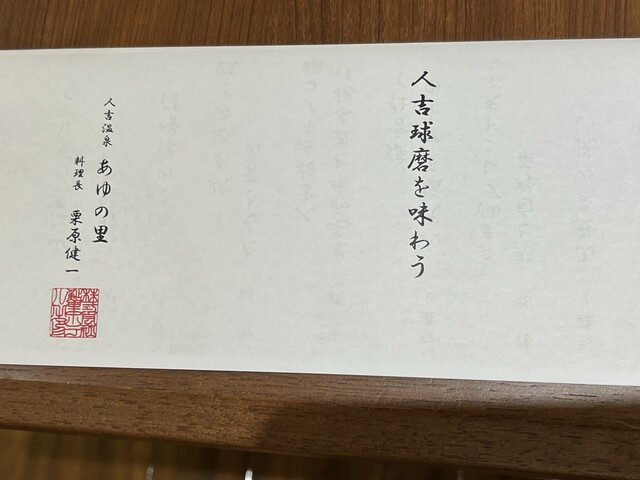 人吉球磨を味わう
人吉温泉 あゆの里
料理長 栗原健一